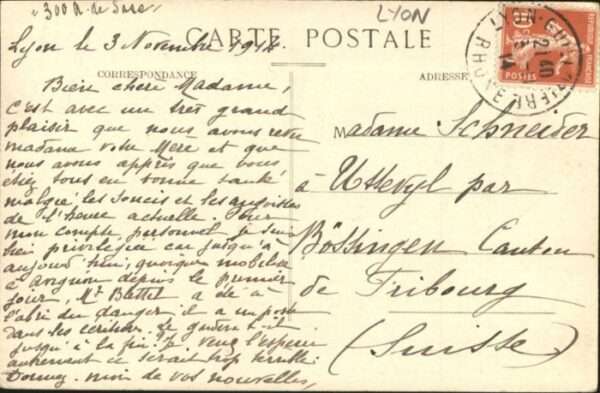 "300 R. de Sare"
LYON
CARTE POSTALE
Lyon le 3 Novembre 1914.
CORRESPONDANCE
ADRESSE
Bien chère Madame,
c'est avec un très grand
plaisir que nous avons revu
madame votre Mère et que
nous avons appris que vous
étiez tous en bonne santé
malgré les soucis et les angoisses
de l'heure actuelle. Pour
mon compte personnel je suis
bien privilégiée car jusqu'à
aujourd'hui, quoique mobilisé
à Avignon depuis le premier
jour, Mr a été à
l'abri du danger il a un poste
dans les écritures. Le
jusqu'à la fin? Je veux l'espérer
autrement ce serait trop terrible.
Donnez-moi de vos nouvelles,
Madame Schneider
à Uttevyl par
Bössingen Canton
de Fribourg
(Suisse)
LYON
RHONE
POSTES
10